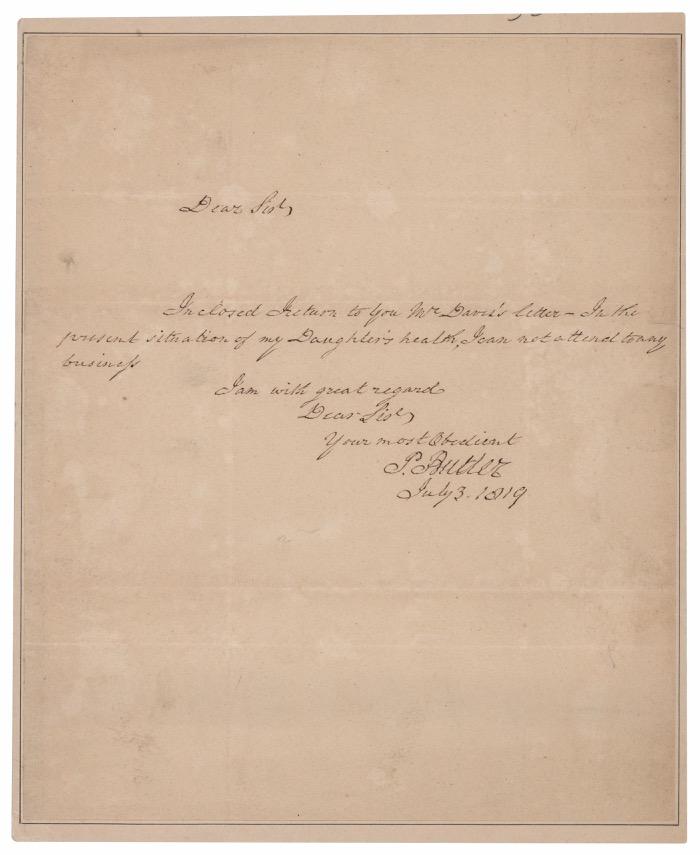 Dear Sir,
Inclosed I return to You Mr Davis's letter - In the
present situation of my Daughter's health, I can not attend to any
business
I am with great regard
Dear Sir,
Your most Obedient
P. Butler
July 3. 1819